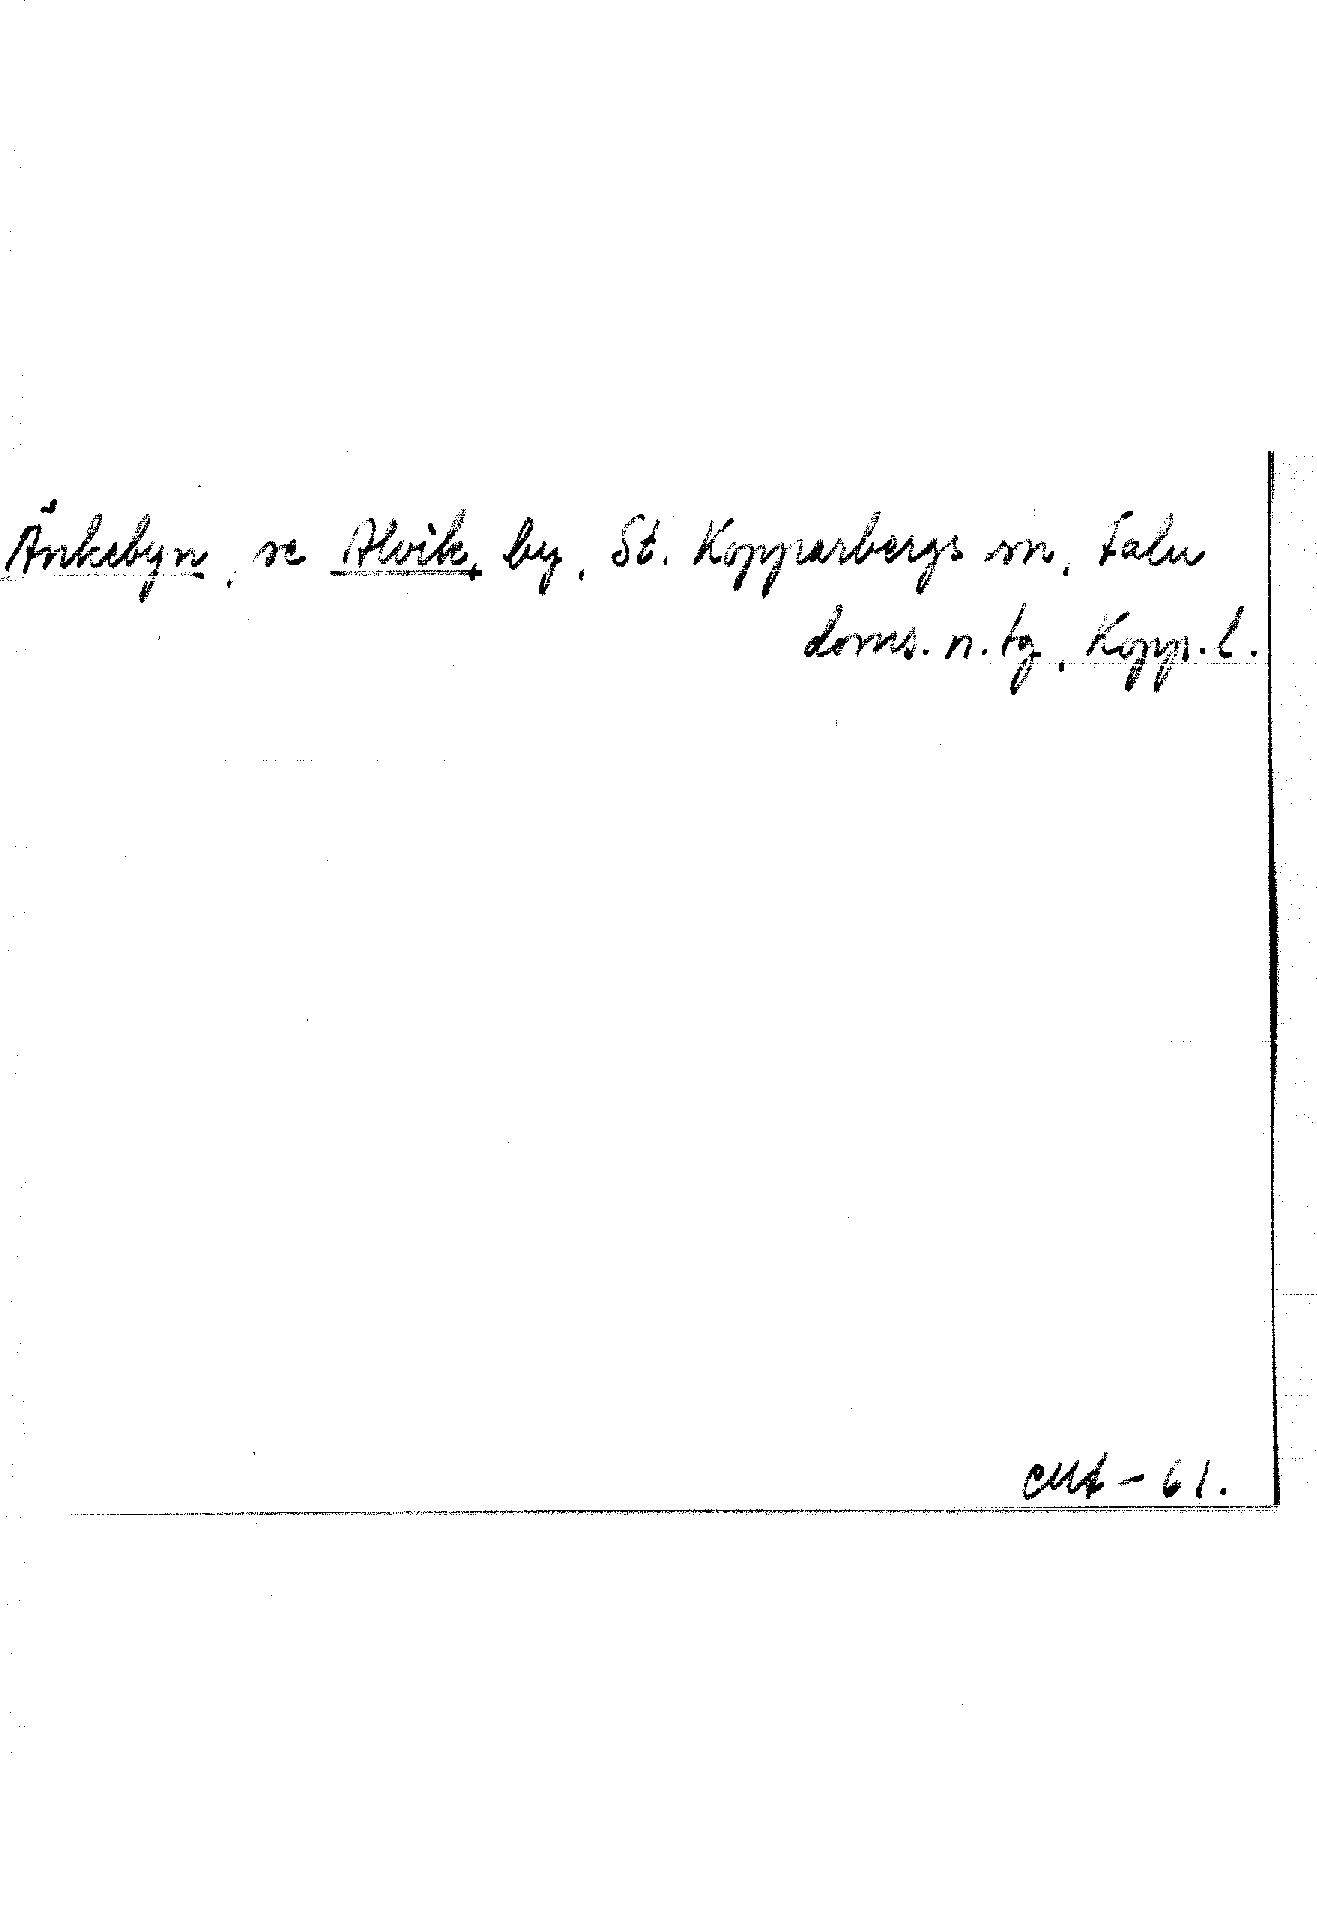 Änkebyn, se Alvik, by, St. Kopparbergs sn, Falu
doms. n. tg, Kopp. l.
- 61.